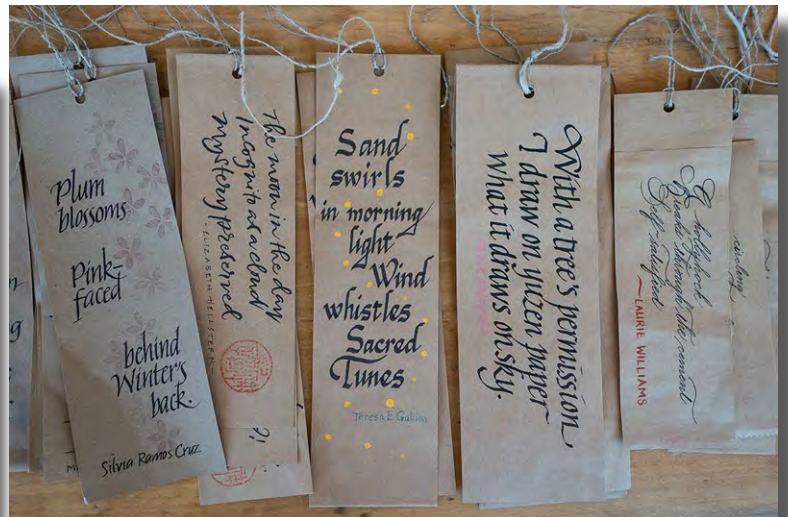 Plum
blossoms
Pink-
faced
behind
Winter's
back.
Silvia Ramos Cruz
The moon in the day
Incognito as a cloud
Mystery preserved
-ELIZABETH HELLSTERN-
Sand
swirls
in morning
light
Wind
whistles
Sacred
Tunes
Teresa E Gallion
With a tree's permission
I draw on yuzen paper
what it draws on sky.
A hollyhock
Breaks through the cement
Self-satisfied
~LAURIE WILLIAMS